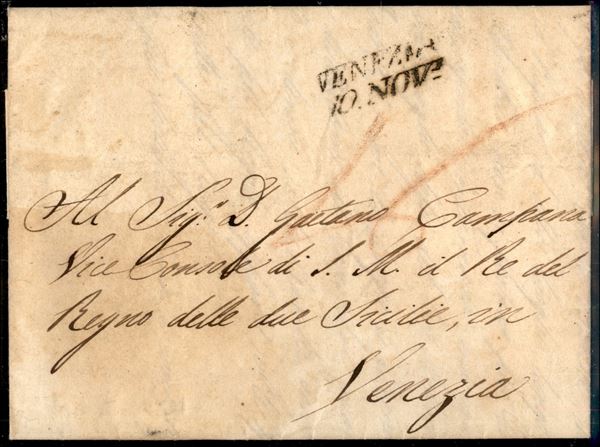 VENEZIA
10. NOVᵉ
Al Sigʳ D. Gaetano Campana
Vice Console di S. M. il Re del
Regno delle due Sicilie, in
Venezia